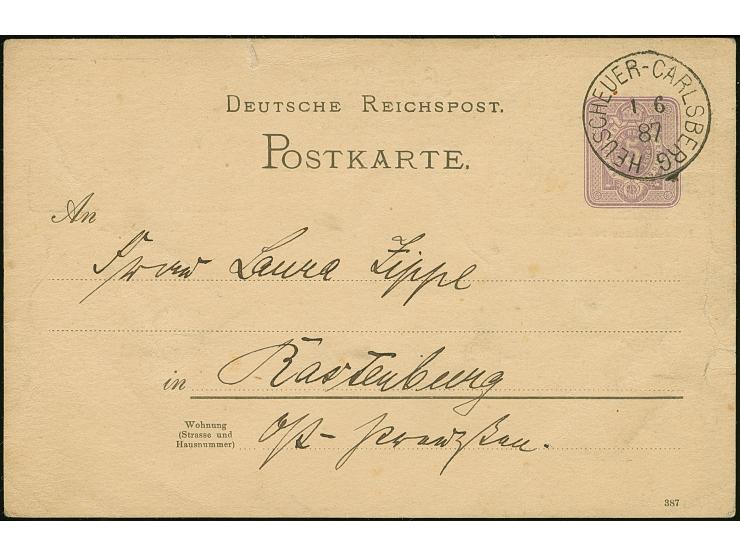 DEUTSCHE REICHSPOST.
POSTKARTE.
HEUSCHEUER-CARLSBERG
1 6
87
5
An
Frau Laura Zippel
in Rastenburg
Wohnung
(Strasse und
Hausnummer)
Ost-Preußen.
387